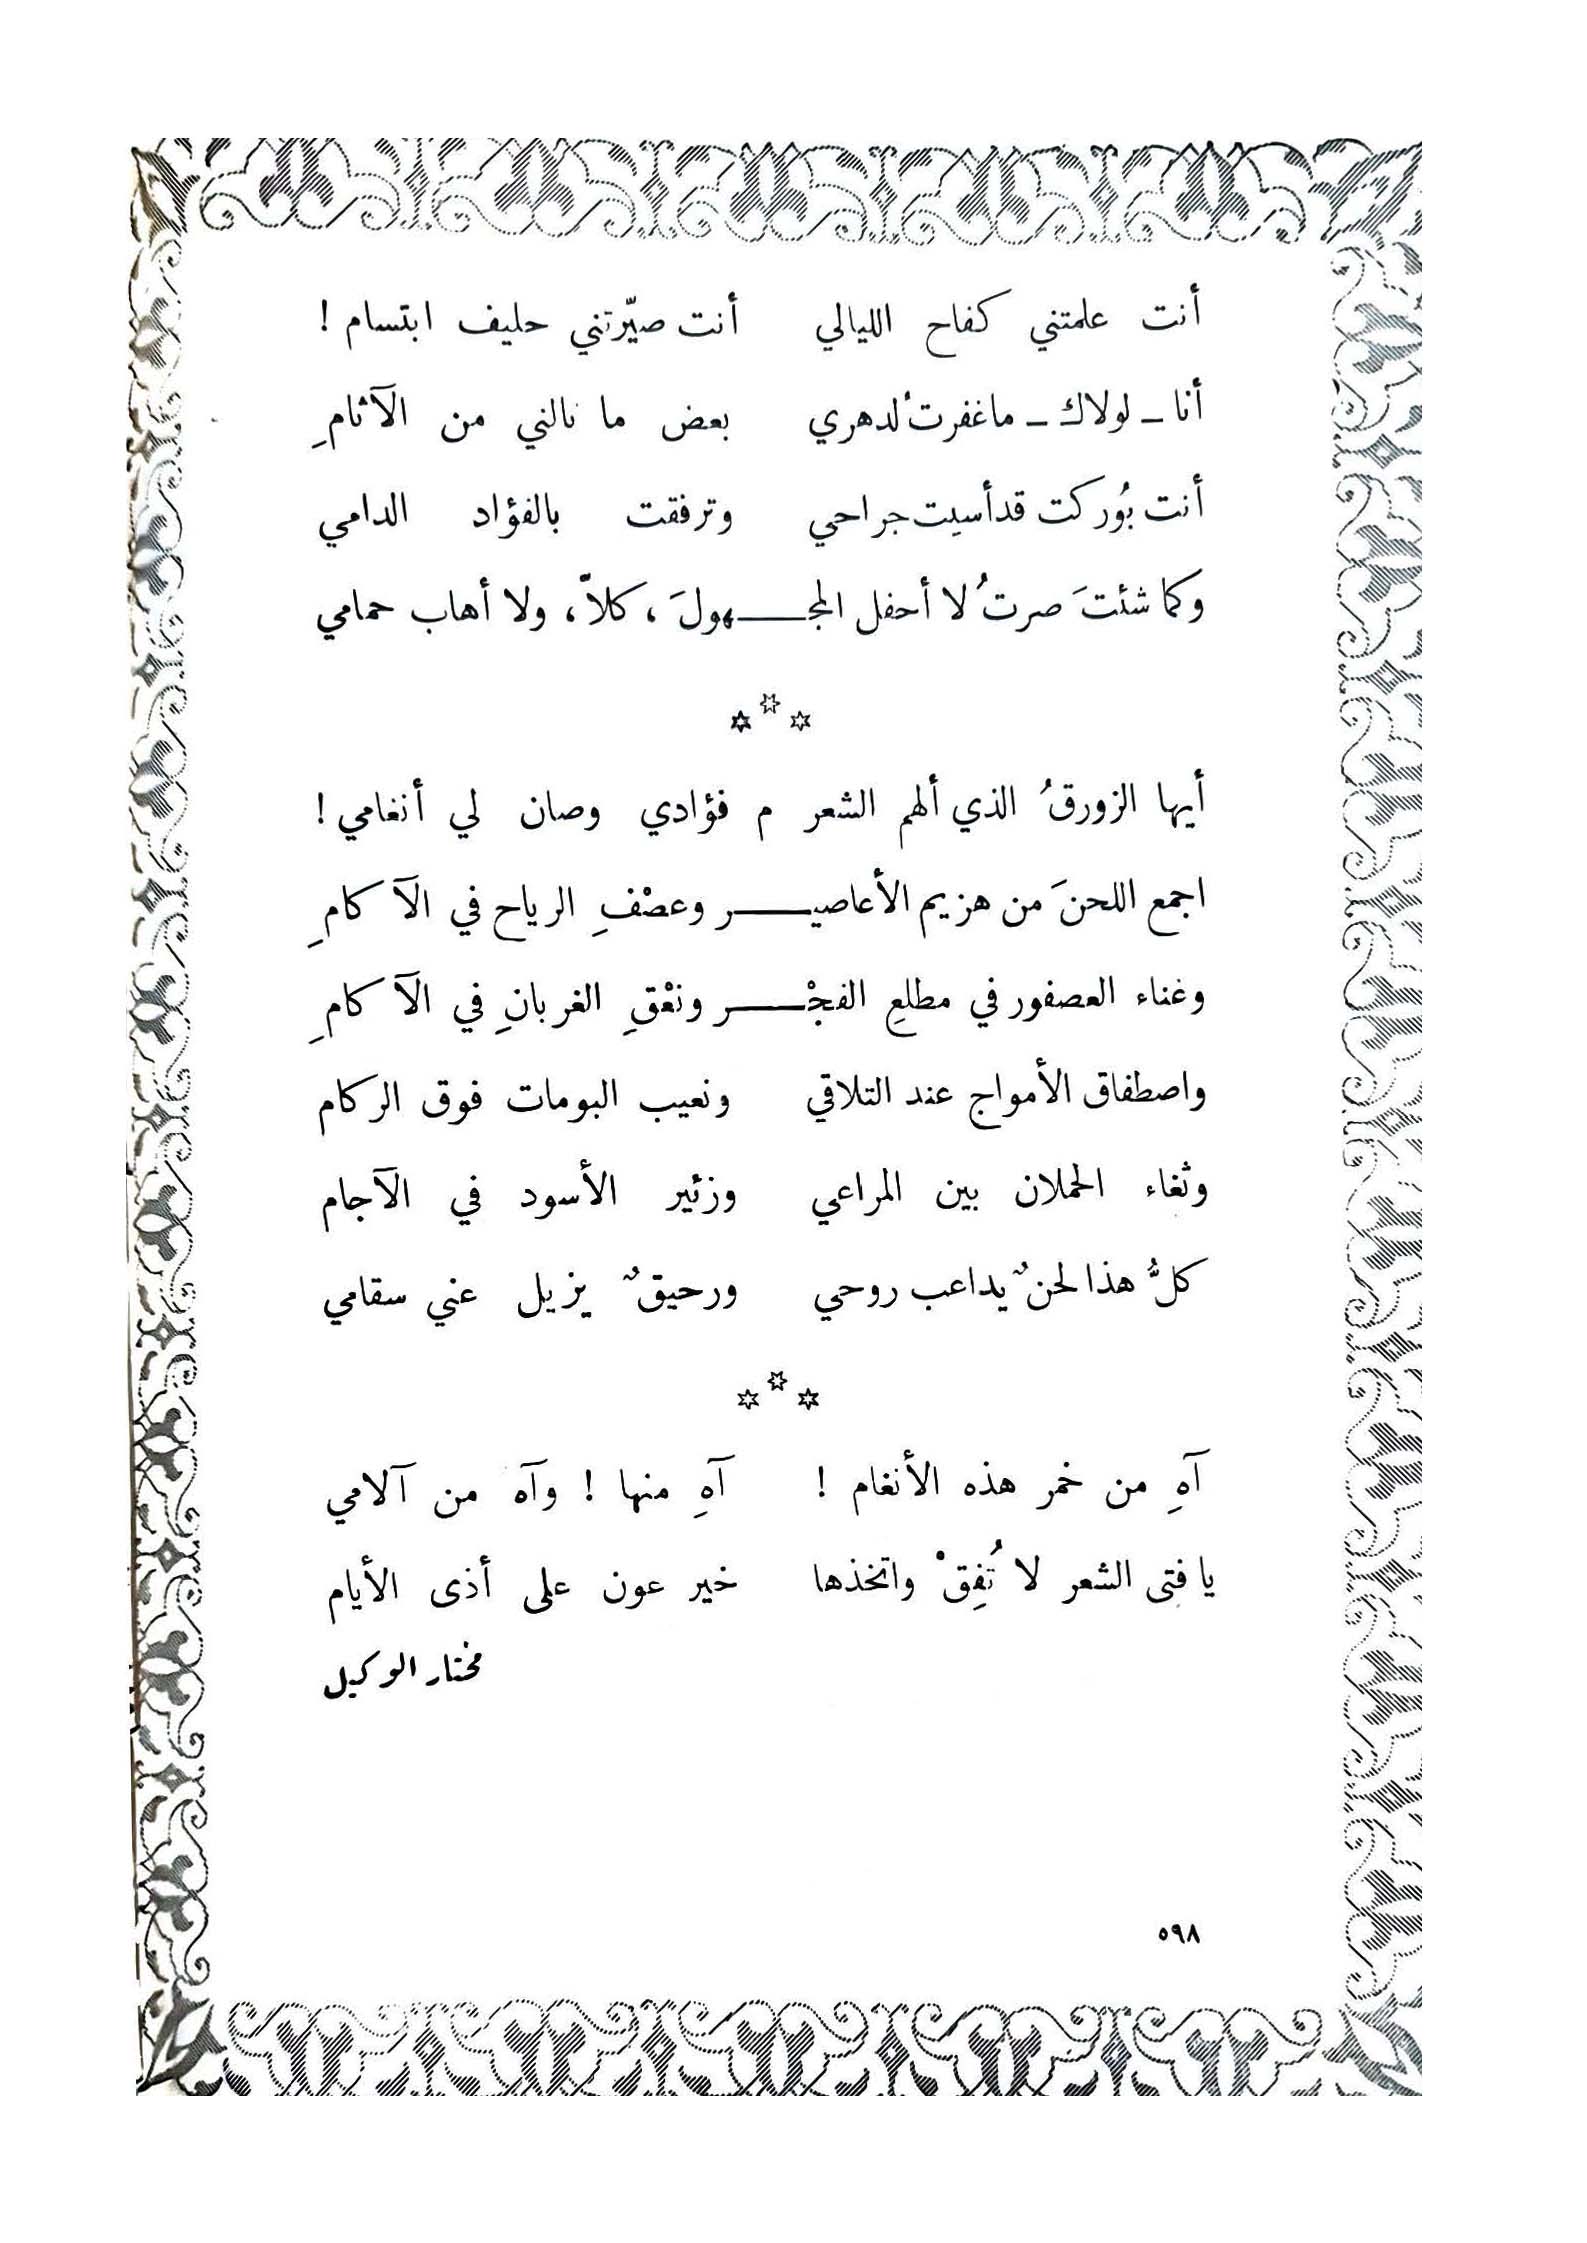 أنت علمتني كفاح الليالي أنت صيّرتني حليف ابتسام !
أنا ــ لولاك ــ ماغفرتُ لدهري بعض ما نالني من الآثامِ
أنت بُوركت قد أسيت جراحي وترفقت بالفؤاد الدامي
وكما شئتَ صرتُ لا أحفل المجـــهولَ ، كلاّ ، ولا أهاب حمامي
✡ ✡ ✡
أيها الزورقُ الذي ألهم الشعر م فؤادي وصان لي أنغامي !
اجمع اللحنَ من هزيم الأعاصيـــر وعصْفِ الرياح في الآكامِ
وغناء العصفور في مطلعِ الفجْـــر ونعْقِ الغربانِ في الآكامِ
واصطفاق الأمواج عند التلاقي ونعيب البومات فوق الركام
وثغاء الحملان بين المراعي وزئير الأسود في الآجام
كلُّ هذا لحنٌ يداعب روحي ورحيقٌ يزيل عني سقامي
✡ ✡ ✡
آهِ من خمر هذه الأنغام ! آهِ منها ! وآه من آلامي
يا فتى الشعر لا تُفِقْ واتخذها خير عون على أذى الأيام
مختار الوكيل
٥٩٨